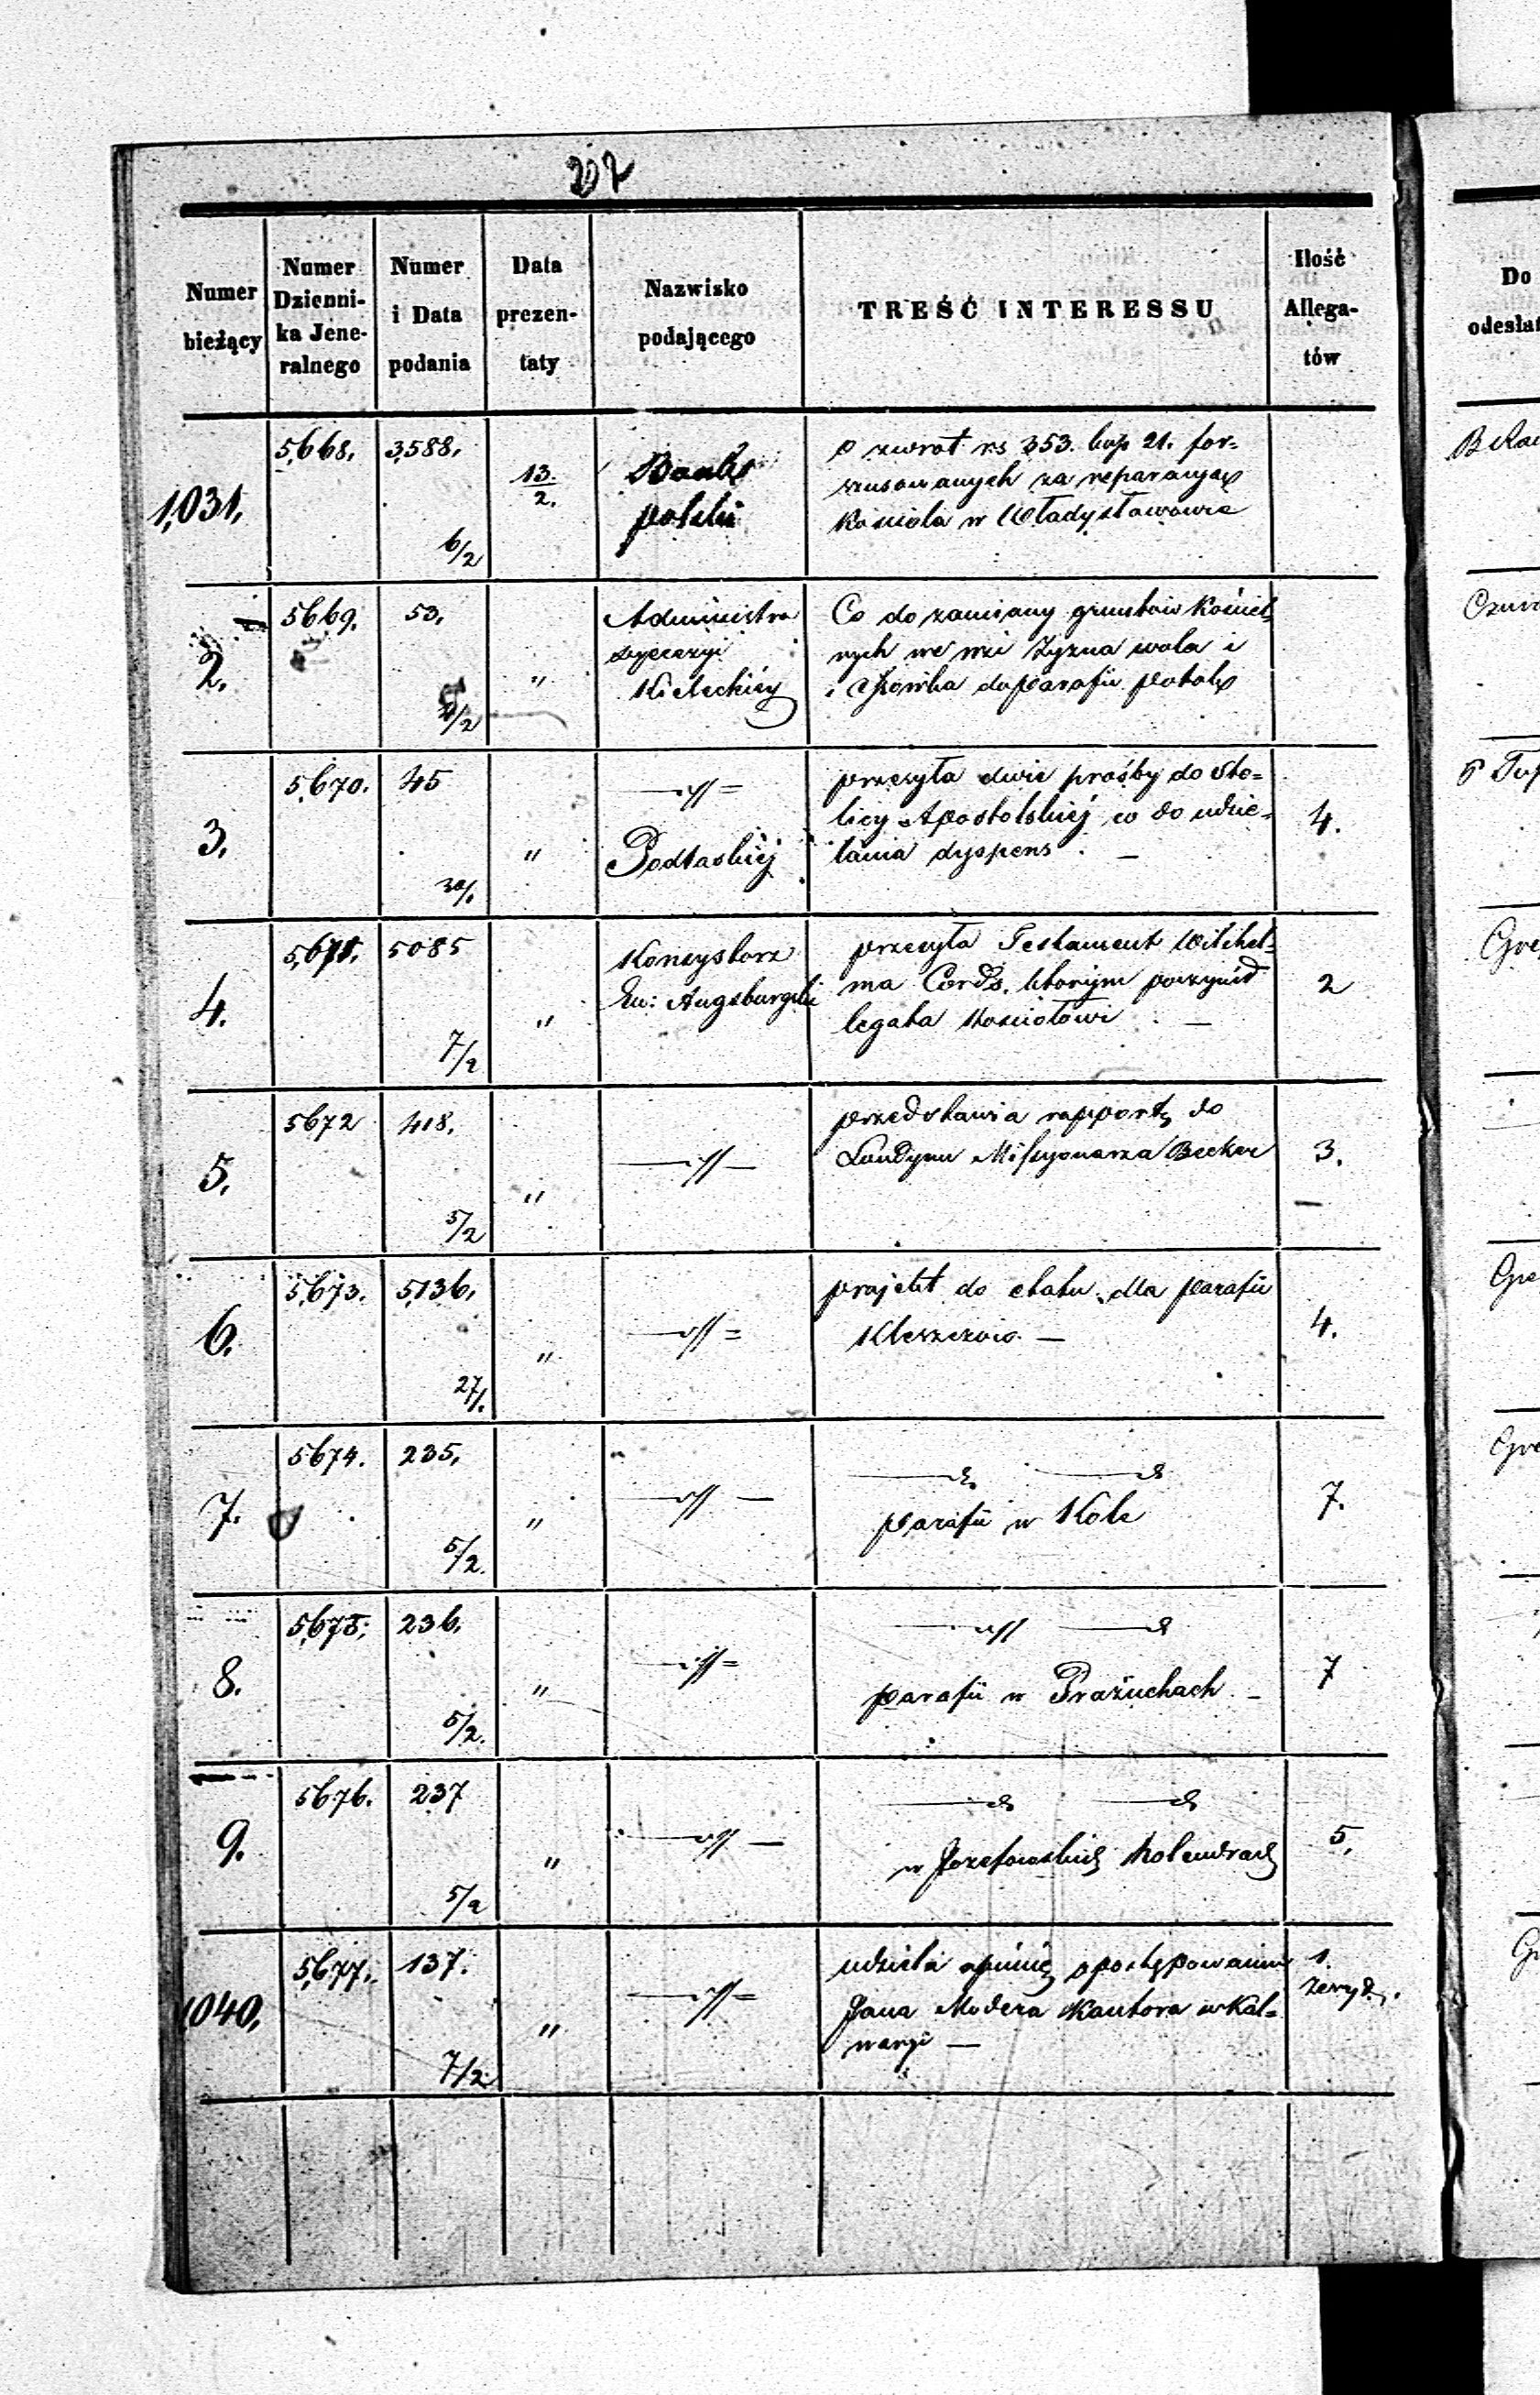 207
Numer bieżący
Numer Dzienni-ka Jene-ralnego
Numer i Data podania
Data prezen-taty
Nazwisko podającego
TREŚĆ INTERESSU
Ilość Allega-tów
Do
odesłan
1,031. 5,668. 3,588. 6/2 13/2.
Bank
polski
o zwrot rs 353. kop 21. for=
szusowanych za reparacyą
kościoła w Władysławowie
2. 5669. 53. /2 "
Administra
dyecezyi
Kieleckiéj
Co do zamiany gruntów Kościel=
nych we wsi Żyzna wola i
do parafii
3. 5,670. 45 30/1 "
Podlaskiéj
przesyła dwie prośby do Sto=
licy Apostolskiéj co do udzie=
lania dyspens. —
4.
4. 5,671. 5085 7/2 "
Konsystorz
Ew: Augsburgski
przesyła Testament Wilhel=
ma Cords. którym poczynił
legata Kościołowi —
2
5. 5672 418. 5/2 "
przedstawia rapport do
Londynu Missyonarza Becker
3.
6. 5,673. 5,136. 27/1. "
projekt do etatu dla parafii
Kleszczow —
4.
7. 5674. 235. 5/2. "
parafii w Kole
7.
8. 5,675. 236. 5/2. "
parafii w Prażuchach —
7
9. 5676. 237 5/2 "
w Józefowskich Holendrach
5.
1040. 5,677. 137. 7/2 "
udziela opinię o postępowaniu
Jana Modera Kantora w Kal=
waryi —
1.